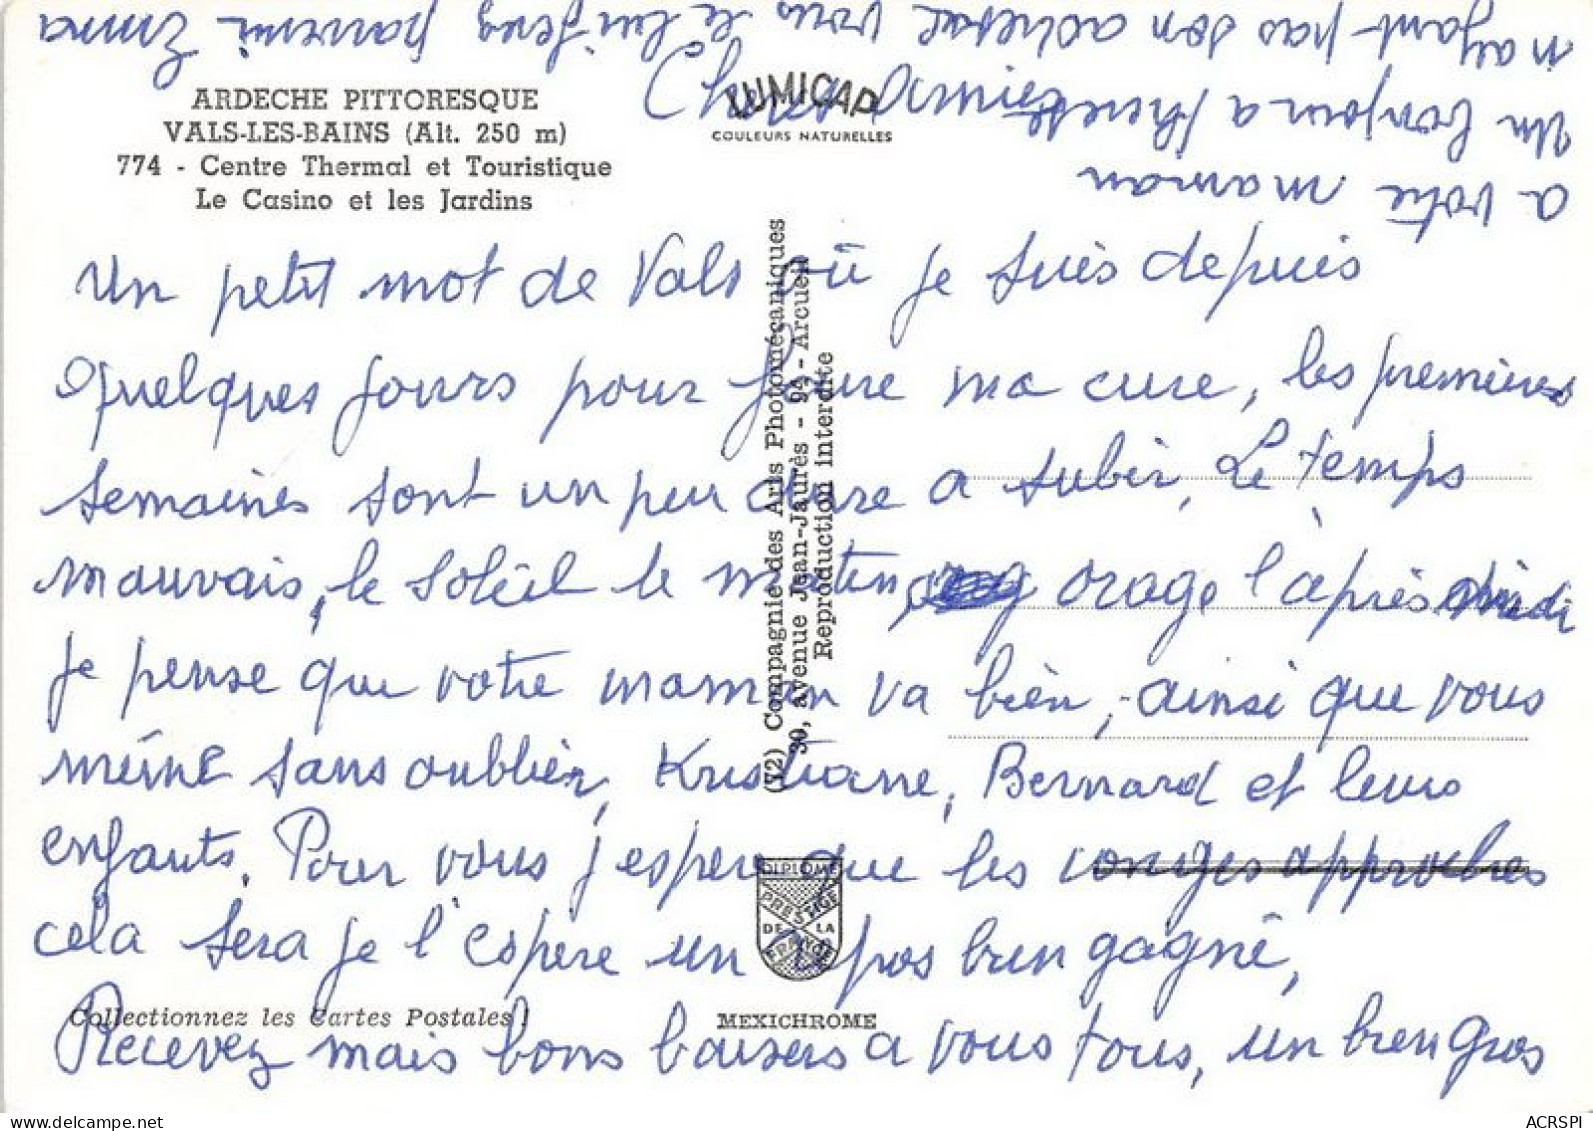 ARDECHE PITTORESQUE
VALS-LES-BAINS (Alt. 250 m)
774 - Centre Thermal et Touristique
Le Casino et les Jardins
LUMICAP
COULEURS NATURELLES
Chers Amis
Un petit mot de Vals où je suis depuis
quelques jours pour faire ma cure, les premières
semaines sont un peu dure a subir, Le temps
mauvais, le soleil le matin, orage l'après midi
je pense que votre maman va bien, ainsi que vous
même sans oublier, Kristiane, Bernard et leurs
enfants. Pour vous j'espere que les conges approches
cela sera je l'espère un repos bien gagné,
Recevez mais bons baisers a vous tous, un bien gros
a votre maman
Un bonjour a
n'ayant pas son adresse vous le lui ferez parvenir Emma
(V2) Compagnie des Arts Photomécaniques
30, avenue Jean-Jaurès - 94 - Arcueil
Reproduction interdite
DIPLOME
PRESTIGE
DE LA
FRANCE
Collectionnez les Cartes Postales !
MEXICHROME
delcampe.net
ACRSPI